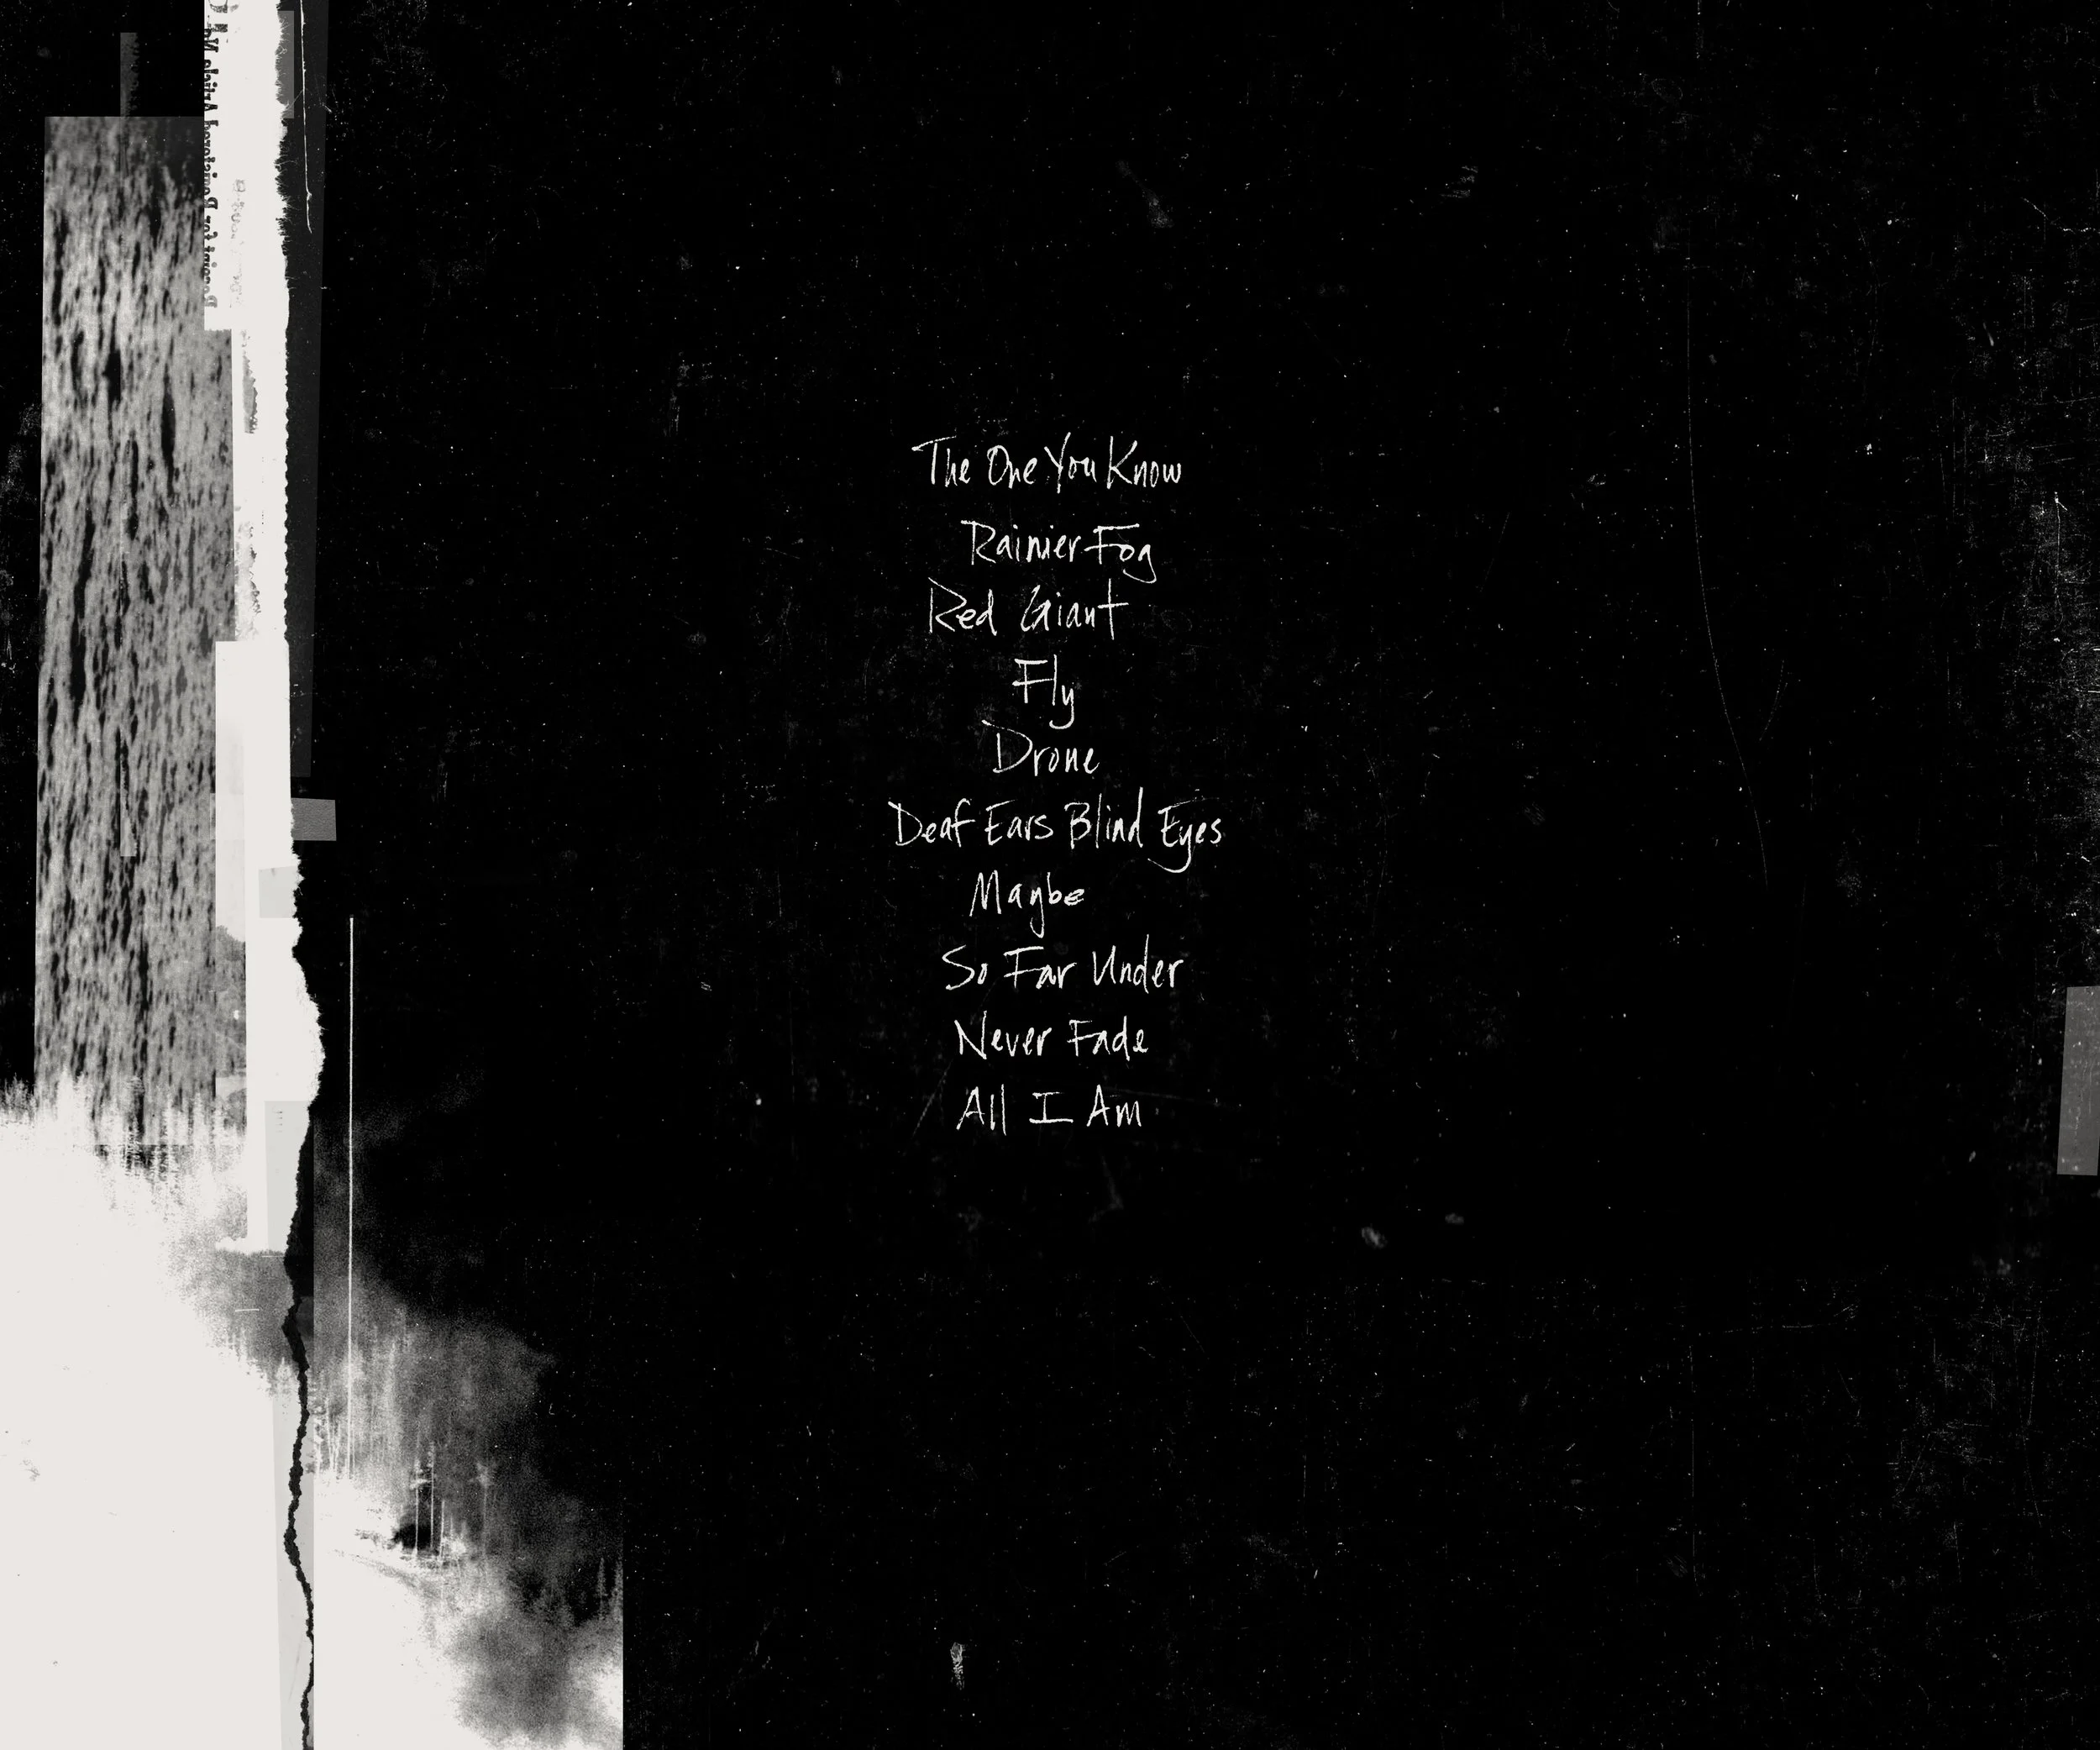 The One You Know
Rainier Fog
Red Giant
Fly
Drone
Deaf Ears Blind Eyes
Maybe
So Far Under
Never Fade
All I Am